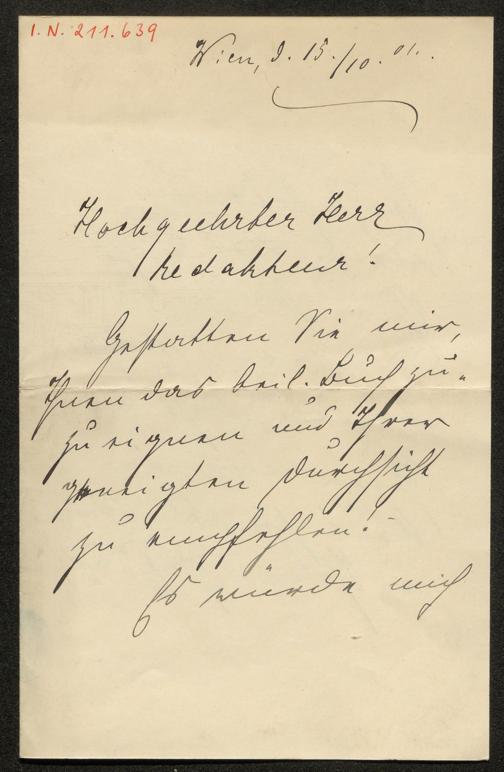 I. N. 211.639
Wien, d. 15./10. 01.
Hochgeehrter Herr
Redakteur!
Gestatten Sie mir,
Ihnen das beil. Buch zu-
zueignen und Ihrer
geneigten Durchsicht
zu empfehlen!
Es würde mich